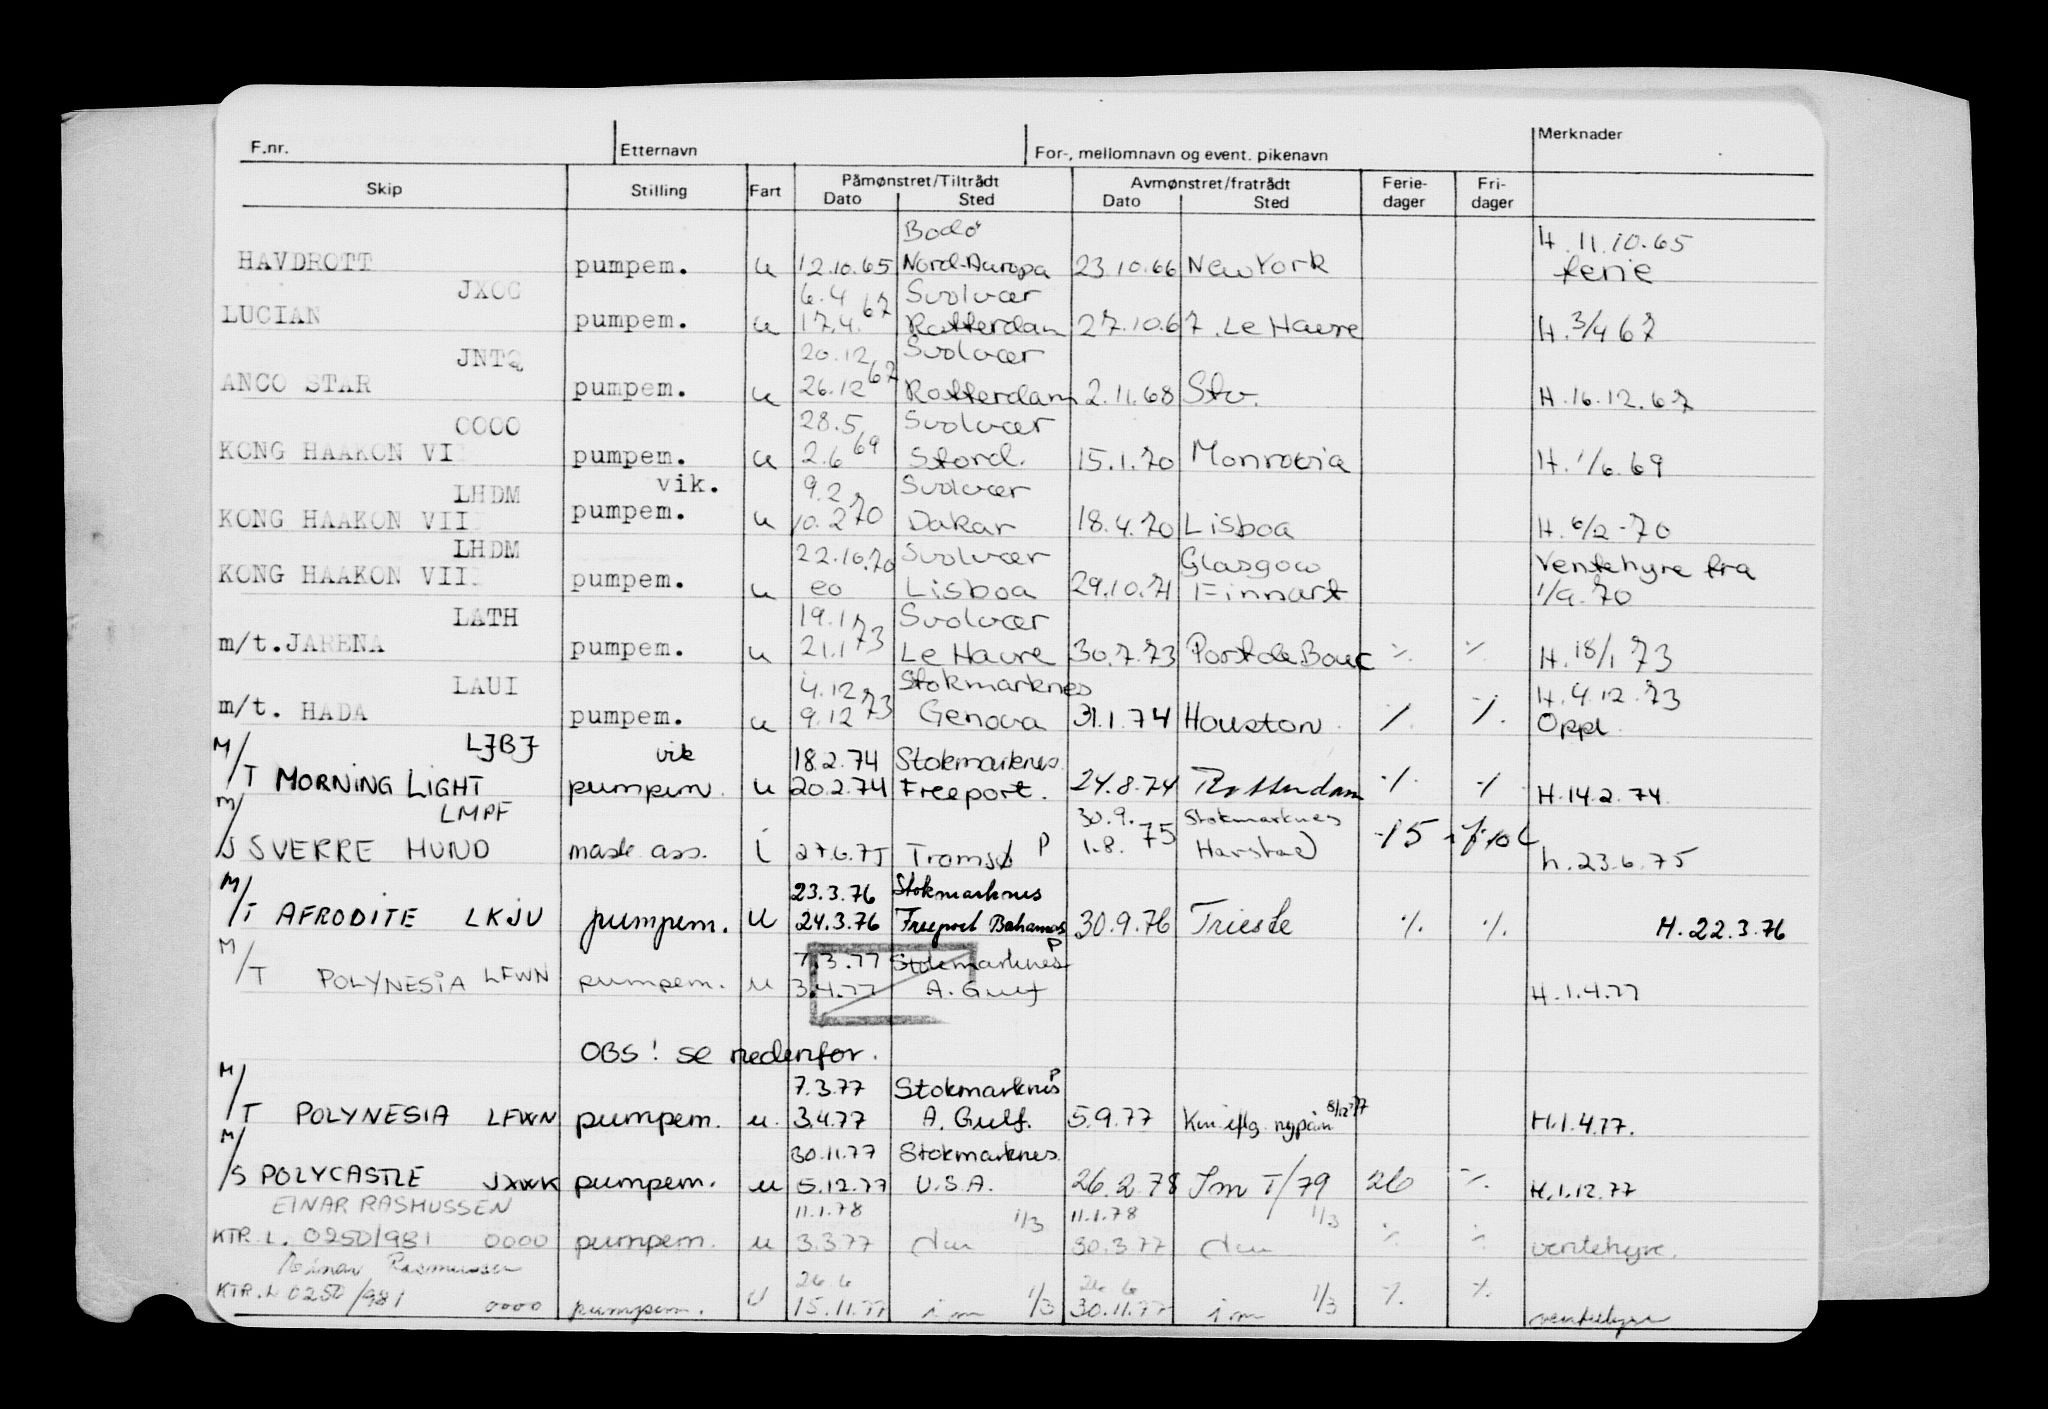 F.nr. Etternavn For-, mellomnavn og event. pikenavn Merknader
Skip Stilling Fart Påmønstret/Tiltrådt Avmønstret/fratrådt Ferie- Fri-
Dato Sted Dato Sted dager dager
Bodø H. 11.10.65
HAVDROTT pumpem. u 12.10.65 Nord-Auropa 23.10.66 New York ferie
JXOG 6.4 67 Svolvær
LUCIAN pumpem. u 17.4. Rotterdam 27.10.67. Le Havre H. 3/4 67
JNTQ 20.12 67 Svolvær
ANCO STAR pumpem. u 26.12 Rotterdam 2.11.68 Stv. H. 16.12.67
OOOO 28.5 69 Svolvær
KONG HAAKON VI pumpem. u 2.6 Stord. 15.1.70 Monrovia H. 1/6.69
LHDM vik. 9.2 70 Svolvær
KONG HAAKON VII pumpem. u 10.2 Dakar 18.4.70 Lisboa H. 6/2-70
LHDM 22.10.70 Svolvær Glasgow Ventehyre fra
KONG HAAKON VII pumpem. u eo Lisboa 29.10.71 Finnart 1/9.70
LATH 19.1 73 Svolvær
m/t. JARENA pumpem. u 21.1 Le Havre 30.7.73 Port de Bouc ./. ./. H. 18/1 73
LAUI 4.12 73 Stokmarknes H. 4.12.73
m/t. HADA pumpem. u 9.12 Genova 31.1.74 Houston ./. ./. Oppl.
M/ LJBJ vik 18.2.74 Stokmarknes.
T MORNING LIGHT pumpem. u 20.2.74 Freeport. 24.8.74 Rotterdam ./. ./. H.14.2.74.
M/ LMPF 30.9. 75 Stokmarknes
S SVERRE HUND mask ass. i 27.6.75 Tromsø P 1.8. Harstad 15 h.23.6.75
M/ 23.3.76 Stokmarknes
T AFRODITE LKJU pumpem. U 24.3.76 Freeport Bahamas 30.9.76 Trieste ./. ./. H. 22.3.76
M/ 7.3.77 Stokmarknes P
T POLYNESIA LFWN pumpem. u 3.4.77 A. Gulf H.1.4.77
OBS! se nedenfor.
M/ 7.3.77 Stokmarknes P
T POLYNESIA LFWN pumpem. u. 3.4.77 A. Gulf. 5.9.77 H.1.4.77.
M/ 30.11.77 Stokmarknes.
S POLYCASTLE JXWK pumpem. u 5.12.77 U.S.A. 26.2.78 Im I/79 26 ./. H.1.12.77
EINAR RASMUSSEN 11.1.78 1/3 11.1.78 1/3
KTR. L. 0250/981 0000 pumpem. u 3.3.77 30.3.77 ./. ./. ventehyre.
Rasmussen 26.6 26.6
KTR. L 0250/981 0000 pumpem. U 15.11.77 im 1/3 30.11.77 im 1/3 ./. ./. ventehyre